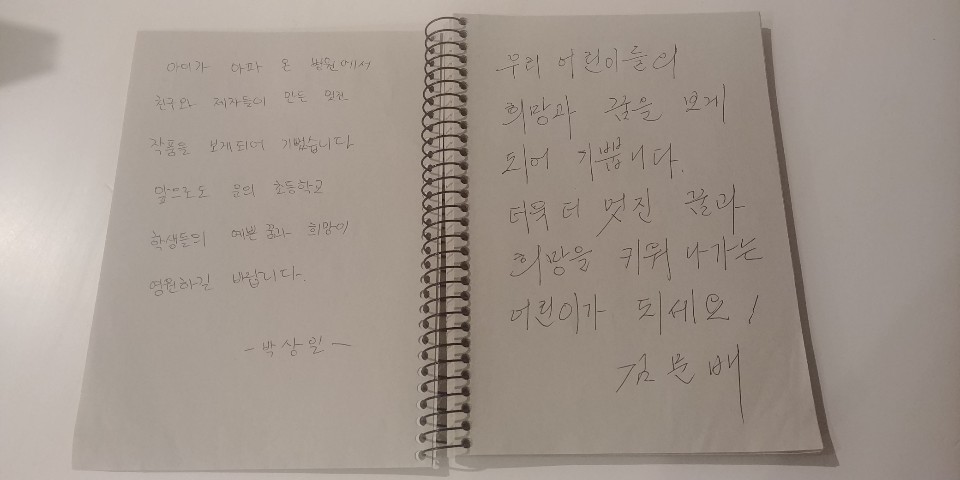 아이가 아파 온 병원에서
친구와 제자들이 만든 멋진
작품을 보게되어 기뻤습니다
앞으로도 문의 초등학교
학생들의 예쁜 꿈과 희망이
영원하길 바랍니다.
- 박상일 -
우리 어린이들의
희망과 꿈을 보게
되어 기쁩니다.
더욱 더 멋진 꿈과
희망을 키워 나가는
어린이가 되세요!
김문배